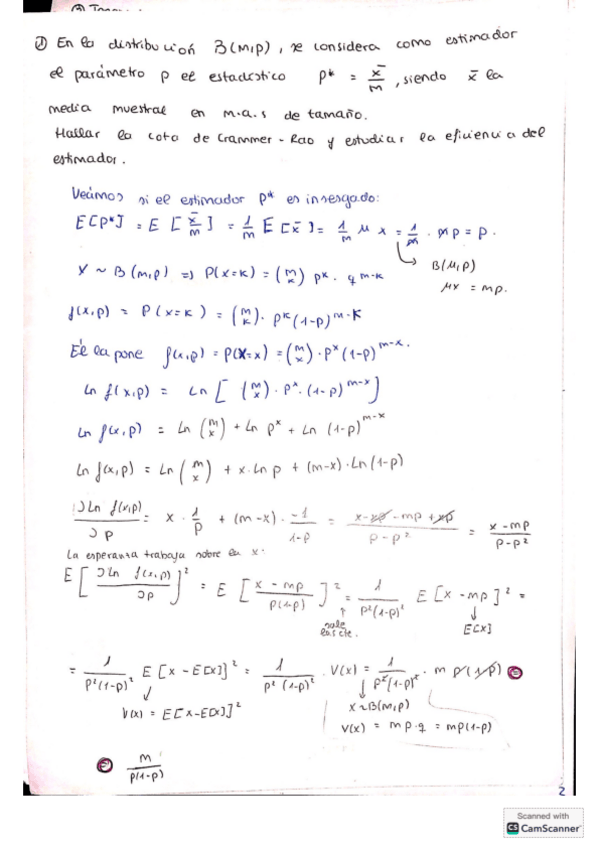 ② En la distribución B(m,p), se considera como estimador
el parámetro p el estadístico p* = x̄/m, siendo x̄ la
media muestral en m.a.s de tamaño.
Hallar la cota de Crammer-Rao y estudiar la eficiencia del
estimador.
Veámos si el estimador p* es insesgado:
E[p*] = E[x̄/m] = 1/m E[x̄] = 1/m μx = 1/m · mp = p.
B(M,p)
μx = mp.
X ~ B(m,p) => P(x=k) = (m k) pᵏ · qᵐ⁻ᵏ
f(x,p) = P(x=k) = (m k) · pᵏ(1-p)ᵐ⁻ᵏ
Él la pone f(x,p) = P(X=x) = (m x) · pˣ(1-p)ᵐ⁻ˣ.
Ln f(x,p) = Ln[(m x) · pˣ · (1-p)ᵐ⁻ˣ]
Ln f(x,p) = Ln(m x) + Ln pˣ + Ln(1-p)ᵐ⁻ˣ
Ln f(x,p) = Ln(m x) + x·Ln p + (m-x)·Ln(1-p)
∂Ln f(x,p)/∂p = x · 1/p + (m-x) · -1/1-p = x-xp-mp+xp/p-p² = x-mp/p-p²
La esperanza trabaja sobre la x.
E[∂Ln f(x,p)/∂p]² = E[x-mp/p(1-p)]² = 1/p²(1-p)² E[x-mp]² =
sale
las cte.
E[x]
= 1/p²(1-p)² E[x-E[x]]² = 1/p²(1-p)² · V(x) = 1/p²(1-p)² · mp(1-p) =
V(x) = E[x-E[x]]²
x~B(m,p)
V(x) = mp·q = mp(1-p)
= m/p(1-p)
2
Scanned with
CS CamScanner